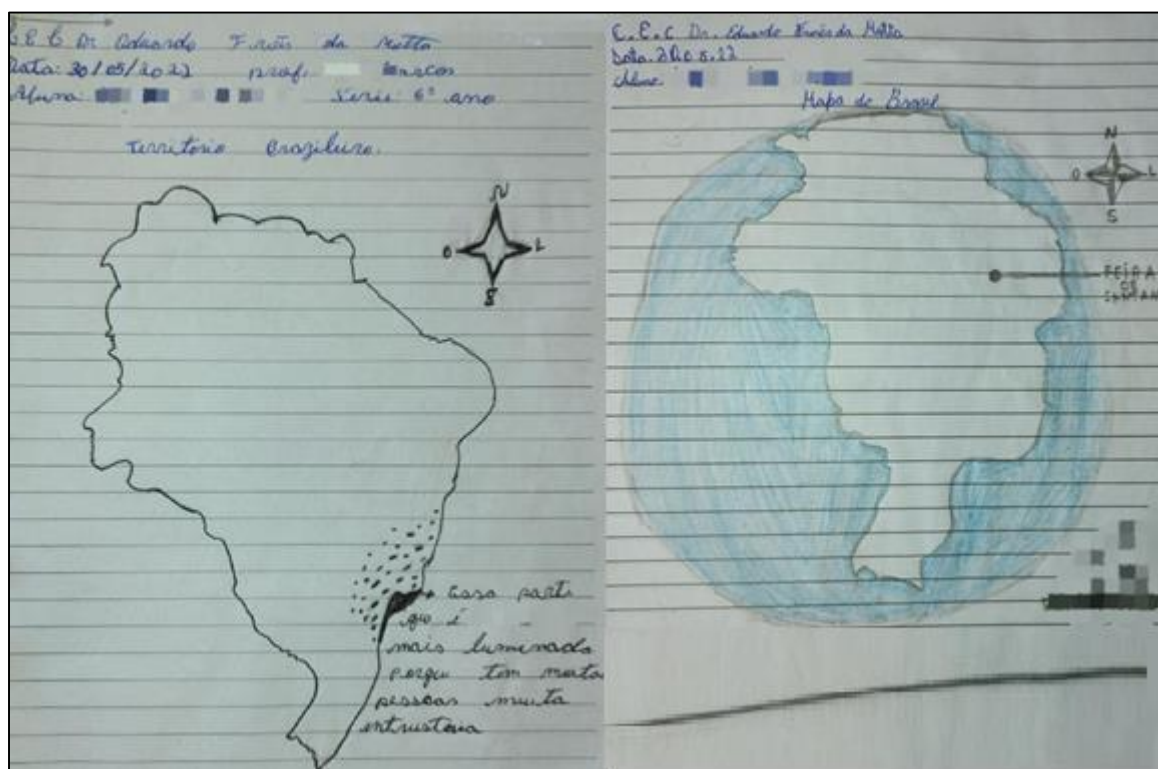 C E C Dr Eduardo Fróis da Motta
Data: 30/05/2022 prof. Marcos
Aluna: Serie: 6º ano
Territorio Braziluro.
N
O L
S
Essa parti
que é
mais luminado
porque tem muita
pessoas muita
intrustoria
C.E.C Dr. Eduardo Fróis da Motta
Data. 30.05.22
Aluno:
Mapa do Brasil
N
O L
S
FEIRA
DE